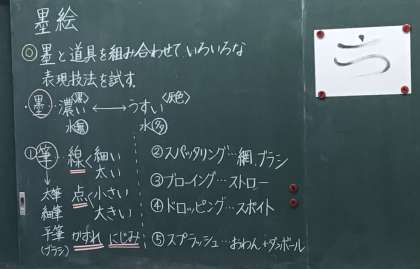 墨絵
◎墨と道具を組み合わせていろいろな
表現技法を試す。
・墨 濃い〈黒〉⟷うすい〈灰色〉
水少 水多
①筆 線<細い
太い
→大筆 点<小さい
細筆 大きい
平筆 かすれ にじみ
(ブラシ)
②スパッタリング…網、ブラシ
③ブローイング…ストロー
④ドロッピング…スポイト
⑤スプラッシュ…おわん+ダンボール